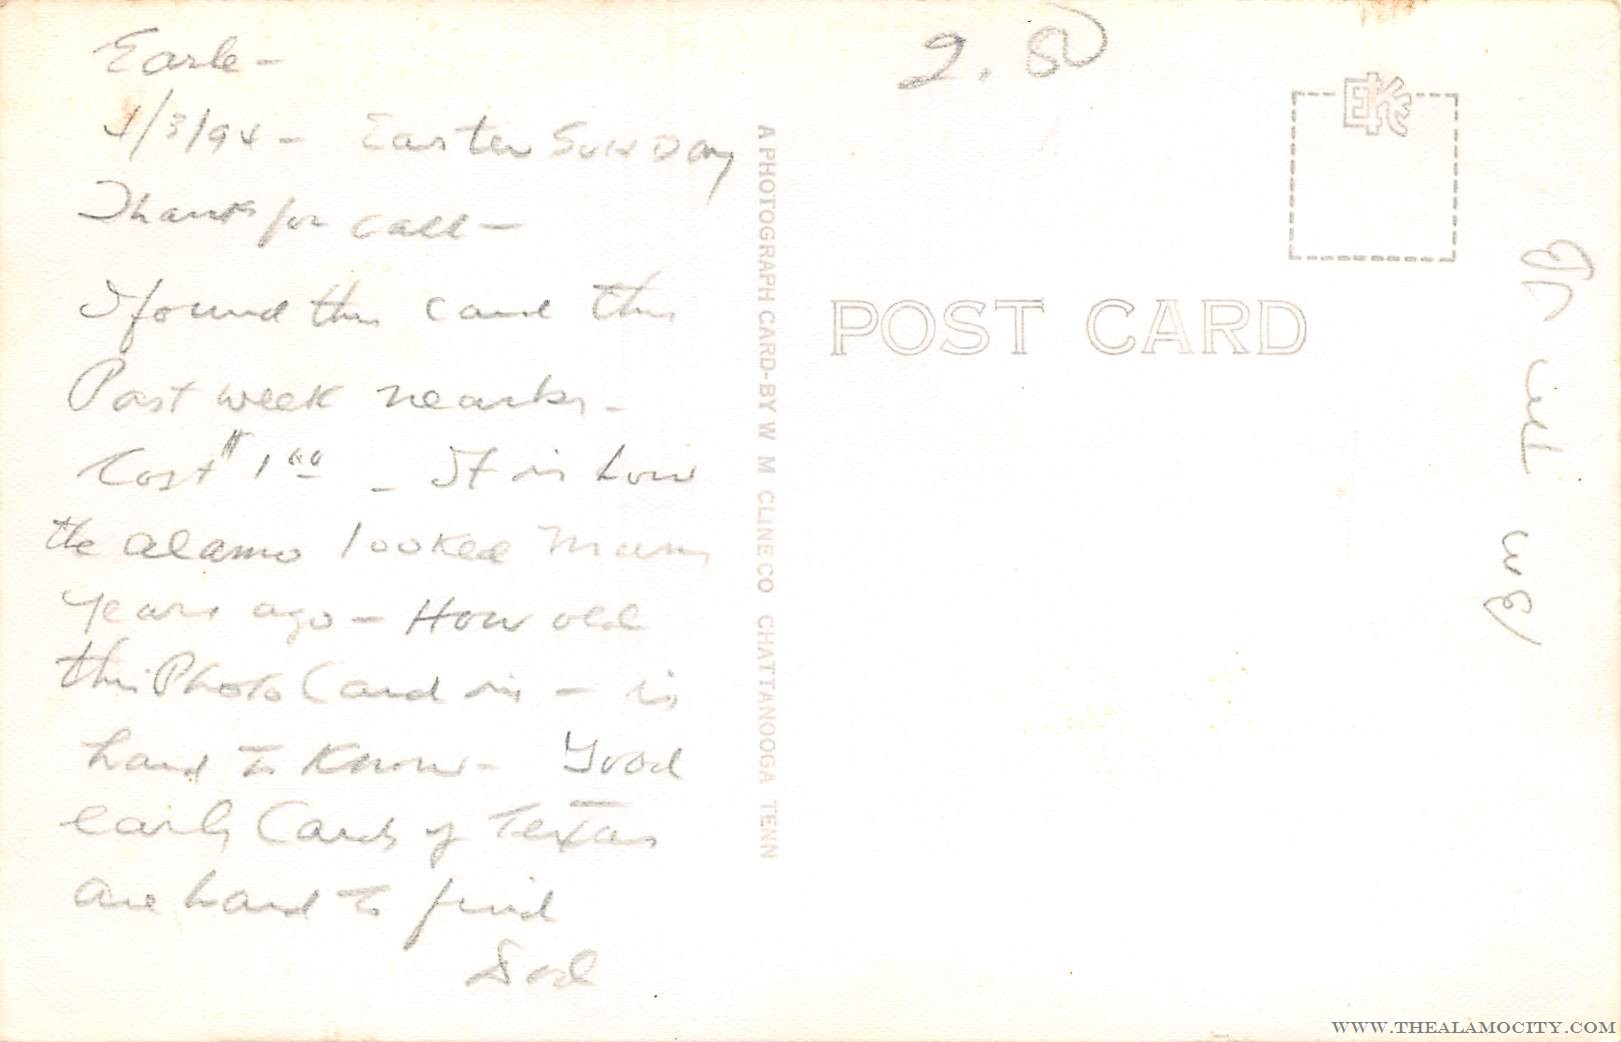 Earle -
4/3/94 - Easter SUNDay
Thanks for call -
I found this card this
Past week nearby -
Cost $1.00 - It is how
the alamo looked many
years ago - How old
this Photo Card is - is
hard to Know - Good
early Cards of Texas
are hard to find
Dad
A PHOTOGRAPH CARD-BY W M CLINE CO CHATTANOOGA TENN
EKC
POST CARD
WWW.THEALAMOCITY.COM